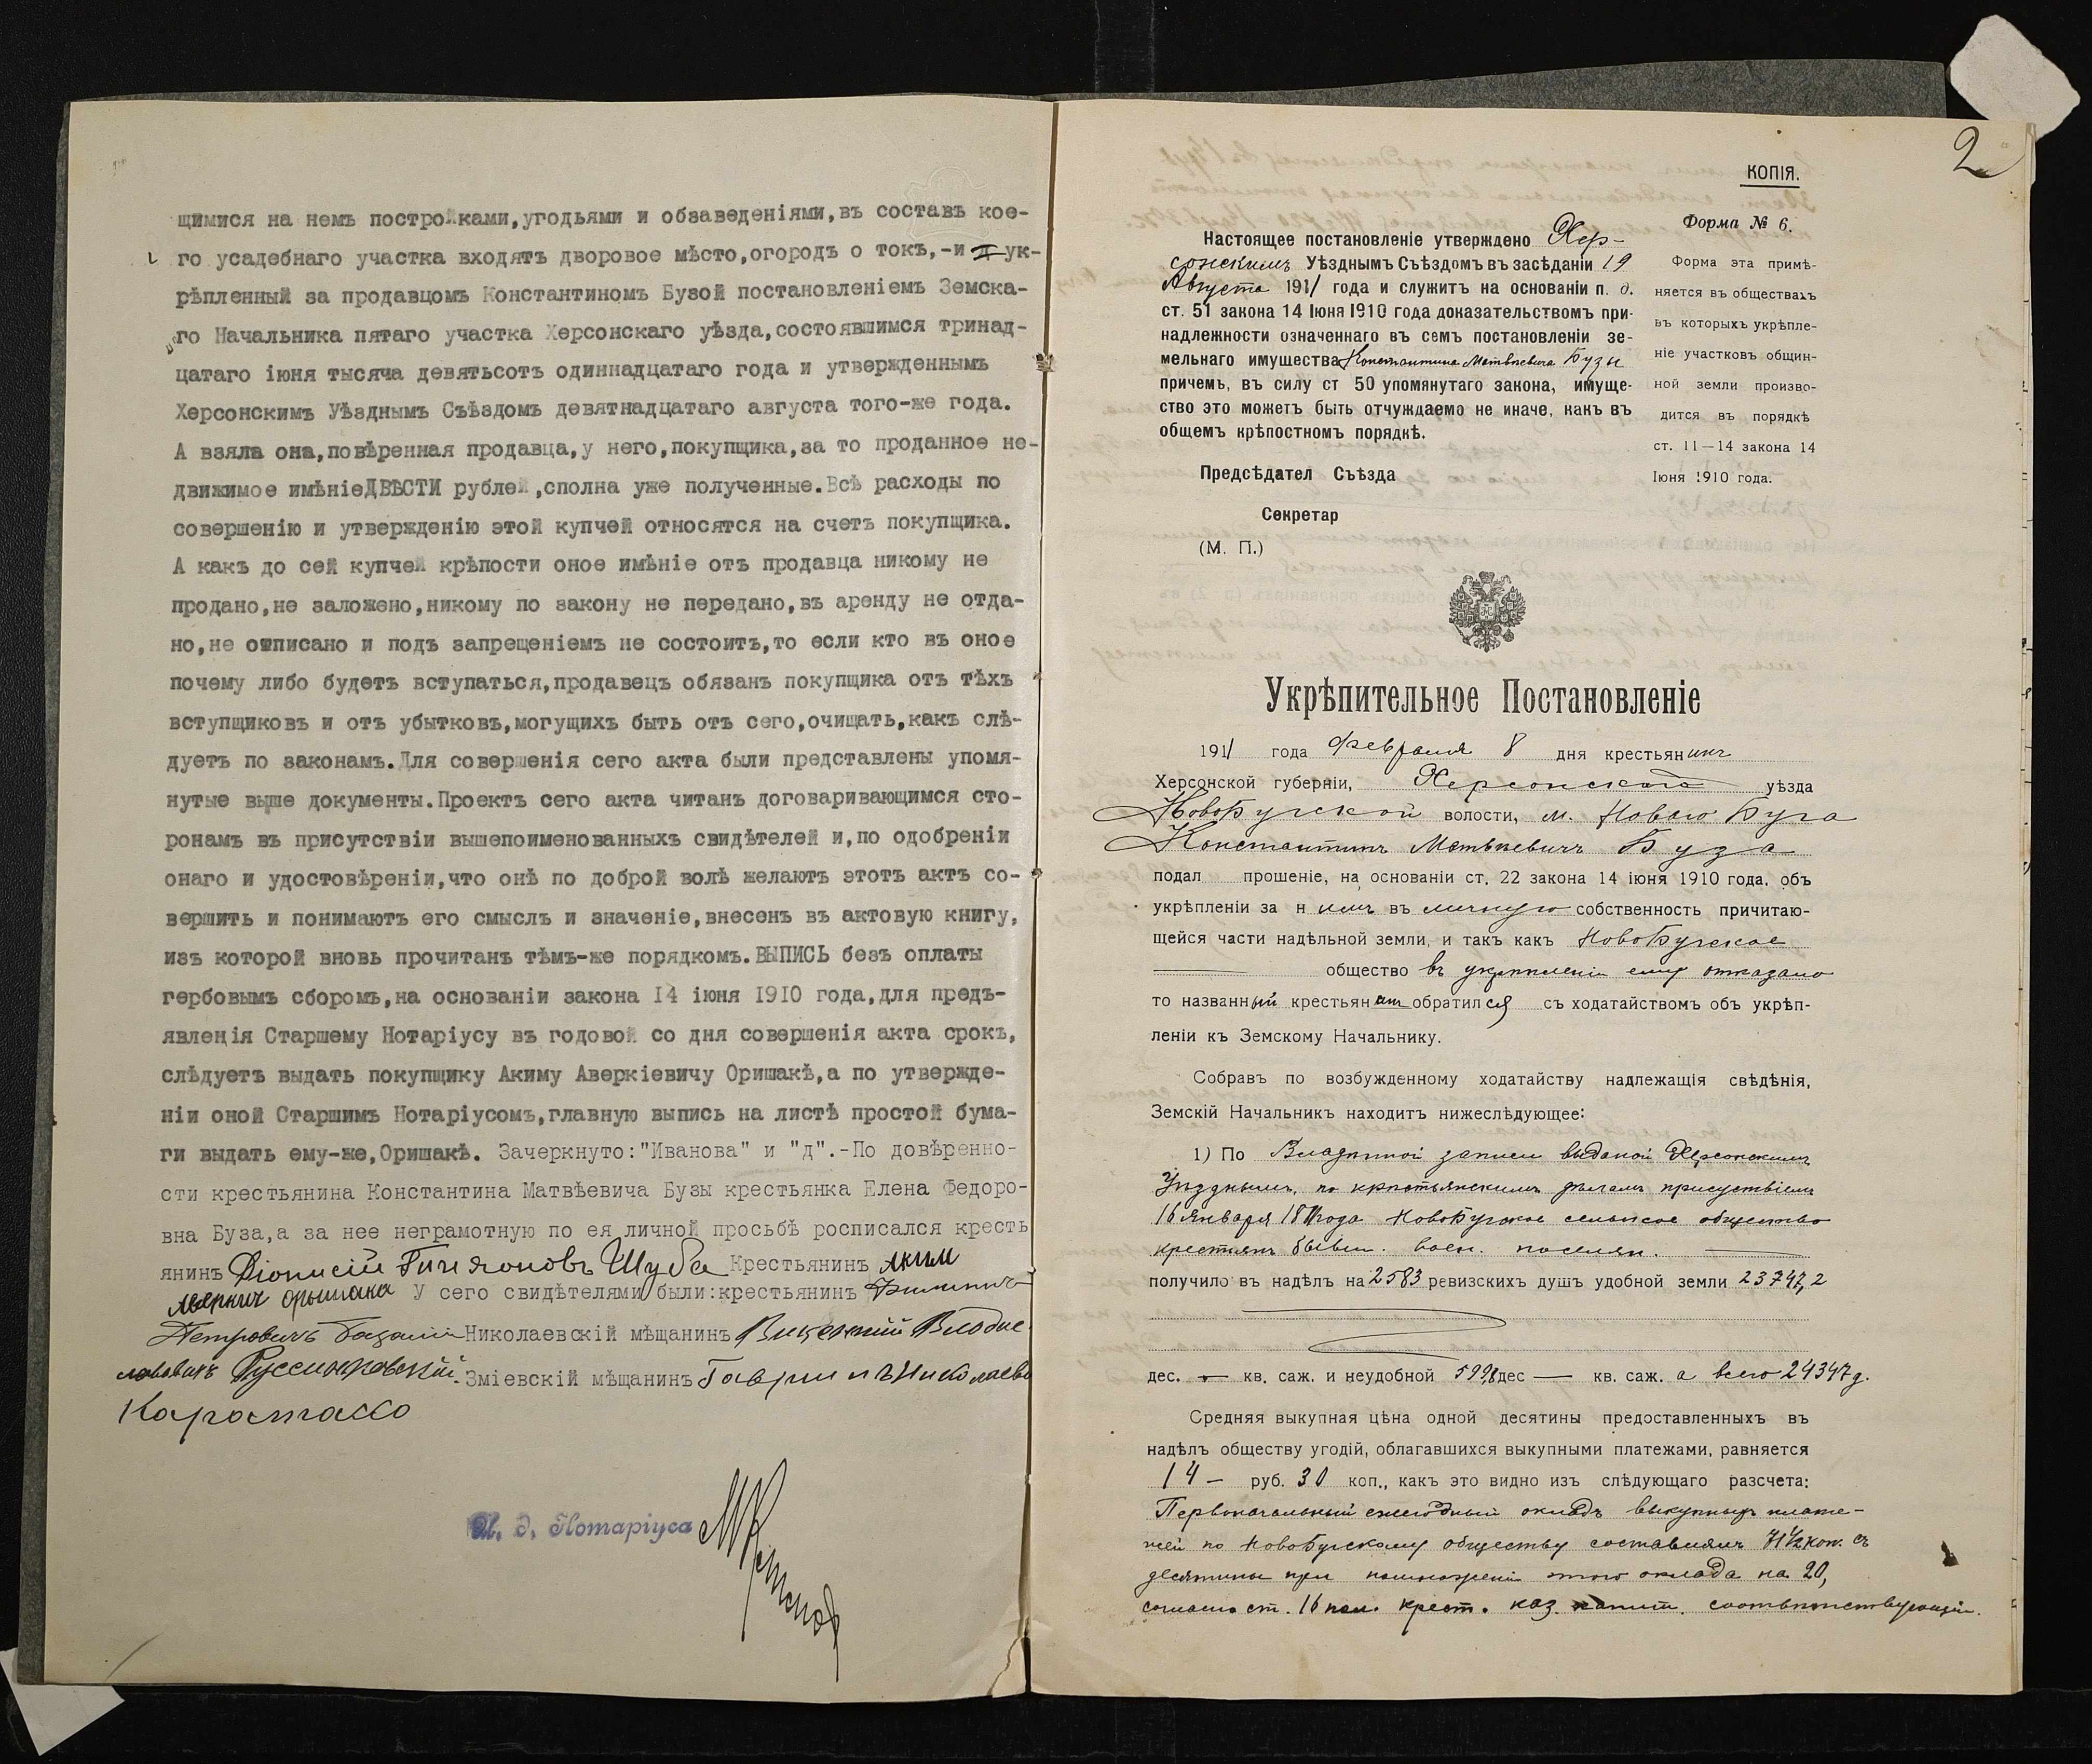 щимися на немъ постройками,угодьями и обзаведеніями,въ составъ кое-
го усадебнаго участка входятъ дворовое мѣсто,огородъ о токъ,-и д ук-
рѣпленный за продавцомъ Константиномъ Бузой постановленіемъ Земска-
го Начальника пятаго участка Херсонскаго уѣзда,состоявшимся тринад-
цатаго іюня тысяча девятьсотъ одиннадцатаго года и утвержденнымъ
Херсонскимъ Уѣзднымъ Съѣздомъ девятнадцатаго августа того-же года.
А взяла она,повѣренная продавца,у него,покупщика,за то проданное не-
движимое имѣніеДВѢСТИ рублей,сполна уже полученные.Всѣ расходы по
совершенію и утвержденію этой купчей относятся на счетъ покупщика.
А какъ до сей купчей крѣпости оное имѣніе отъ продавца никому не
продано,не заложено,никому по закону не передано,въ аренду не отда-
но,не отписано и подъ запрещеніемъ не состоитъ,то если кто въ оное
почему либо будетъ вступаться,продавецъ обязанъ покупщика отъ тѣхъ
вступщиковъ и отъ убытковъ,могущихъ быть отъ сего,очищать,какъ слѣ-
дуетъ по законамъ.Для совершенія сего акта были представлены упомя-
нутые выше документы.Проектъ сего акта читанъ договаривающимся сто-
ронамъ въ присутствіи вышепоименованныхъ свидѣтелей и,по одобреніи
онаго и удостовѣреніи,что онѣ по доброй волѣ желаютъ этотъ актъ со-
вершить и понимаютъ его смыслъ и значеніе,внесенъ въ актовую книгу,
изъ которой вновь прочитанъ тѣмъ-же порядкомъ.ВЫПИСЬ безъ оплаты
гербовымъ сборомъ,на основаніи закона 14 іюня 1910 года,для предъ-
явленія Старшему Нотаріусу въ годовой со дня совершенія акта срокъ,
слѣдуетъ выдать покупщику Акиму Аверкіевичу Оришакѣ,а по утвержде-
ніи оной Старшимъ Нотаріусомъ,главную выпись на листѣ простой бума-
ги выдать ему-же,Оришакѣ. Зачеркнуто:"Иванова" и "д".-По довѣренно-
сти крестьянина Константина Матвѣевича Бузы крестьянка Елена Федоро-
вна Буза,а за нее неграмотную по ея личной просьбѣ росписался кресть
янинъ Діонисій Шуба Крестьянинъ Аким
Аверкич Орышака У сего свидѣтелями были:крестьянинъ Филиппъ
Петровичъ Николаевскій мѣщанинъ Викентій Влодис-
лавовичъ Зміевскій мѣщанинъ Гавриилъ Николаевъ
И. д. Нотаріуса
2
КОПІЯ.
Форма № 6.
Форма эта примѣ-
няется въ обществахъ
въ которыхъ укрѣпле-
ніе участковъ общин-
ной земли произво-
дится въ порядкѣ
ст. 11—14 закона 14
Іюня 1910 года.
Настоящее постановленіе утверждено Хер-
сонскимъ Уѣзднымъ Съѣздомъ въ засѣданіи 19
Августа 1911 года и служитъ на основаніи п. д.
ст. 51 закона 14 Іюня 1910 года доказательствомъ при-
надлежности означеннаго въ семъ постановленіи зе-
мельнаго имущества Константина Матвѣевича Бузы
причемъ, въ силу ст 50 упомянутаго закона, имуще-
ство это можетъ быть отчуждаемо не иначе, какъ въ
общемъ крѣпостномъ порядкѣ.
Предсѣдател Съѣзда
Секретар
(М. П.)
Укрѣпительное Постановленіе
1911 года Февраля 8 дня крестьянинъ
Херсонской губерніи, Херсонскаго уѣзда
НовоБугской волости, м. Новаго Буга
Константинъ Матвѣевичъ Буза
подал прошеніе, на основаніи ст. 22 закона 14 іюня 1910 года, объ
укрѣпленіи за нимъ въ личную собственность причитаю-
щейся части надѣльной земли, и такъ какъ НовоБугское
общество въ укрѣпленіи ему отказано
то названный крестьянинъ обратился съ ходатайствомъ объ укрѣп-
леніи къ Земскому Начальнику.
Собравъ по возбужденному ходатайству надлежащія свѣдѣнія,
Земскій Начальникъ находитъ нижеслѣдующее:
1) По Владѣнной записи выданой Херсонскимъ
Уѣзднымъ, по крестьянскимъ дѣламъ присуствіемъ
16 Января года НовоБугское сельское общество
крестьянъ бывш. воен. поселян.
получило въ надѣлъ на 2583 ревизскихъ душъ удобной земли 23747,2
дес. — кв. саж. и неудобной 599,8 дес — кв. саж. а всего 24347 д.
Средняя выкупная цѣна одной десятины предоставленныхъ въ
надѣлъ обществу угодій, облагавшихся выкупными платежами, равняется
14 — руб. 30 коп., какъ это видно изъ слѣдующаго разсчета:
Первоначальный ежегодный окладъ выкупныхъ плате-
жей по НовоБугскому обществу составлялъ 71½ коп. съ
десятины при помноженіи этого оклада на 20,
согласно ст. 16 пол. крест. каз. капит. соотвѣтствующій.